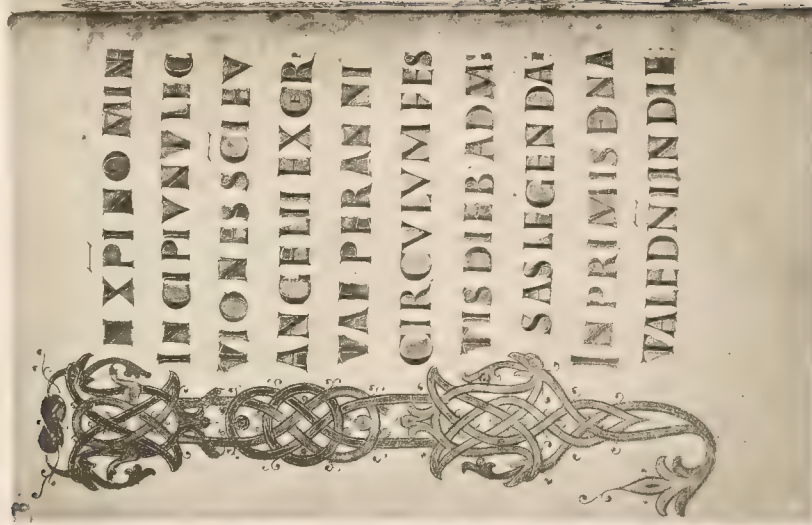 N XPI NOMIN
INCIPIVNT LEC
TIONES SCI EV
ANGELII EXCER
TAE PER ANNI
CIRCVLVM FES
TIS DIEB AD MIS
SAS LEGENDAE
IN PRIMIS D NA
TALE DNI IN DIE